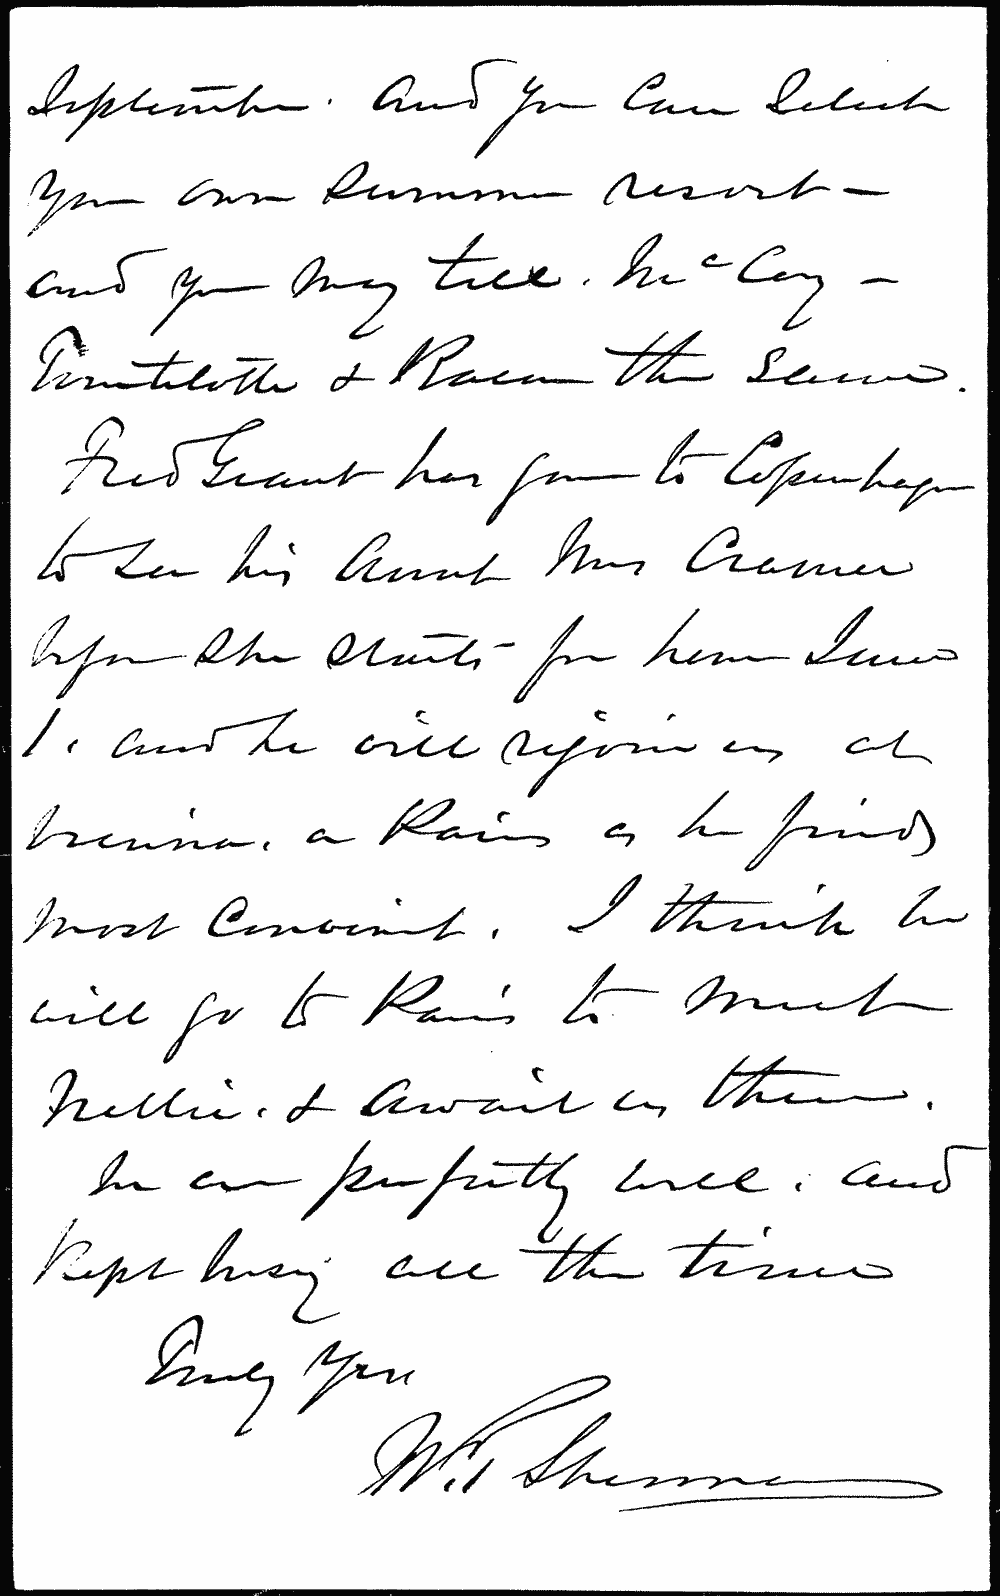 September. and you can select
your own summer resort —
and you may tell. McCoy —
Tourtelotte & Bacon the same.
Fred Grant has gone to Copenhagen
to see his Aunt Mrs Cramer
before she starts for home June
1. and he will rejoin us at
Vienna. or Paris as he finds
most convenient. I think he
will go to Paris to meet
Nellie. & await us there.
We are perfectly well. and
Kept busy all the time
Truly Yours
W. T. Sherman